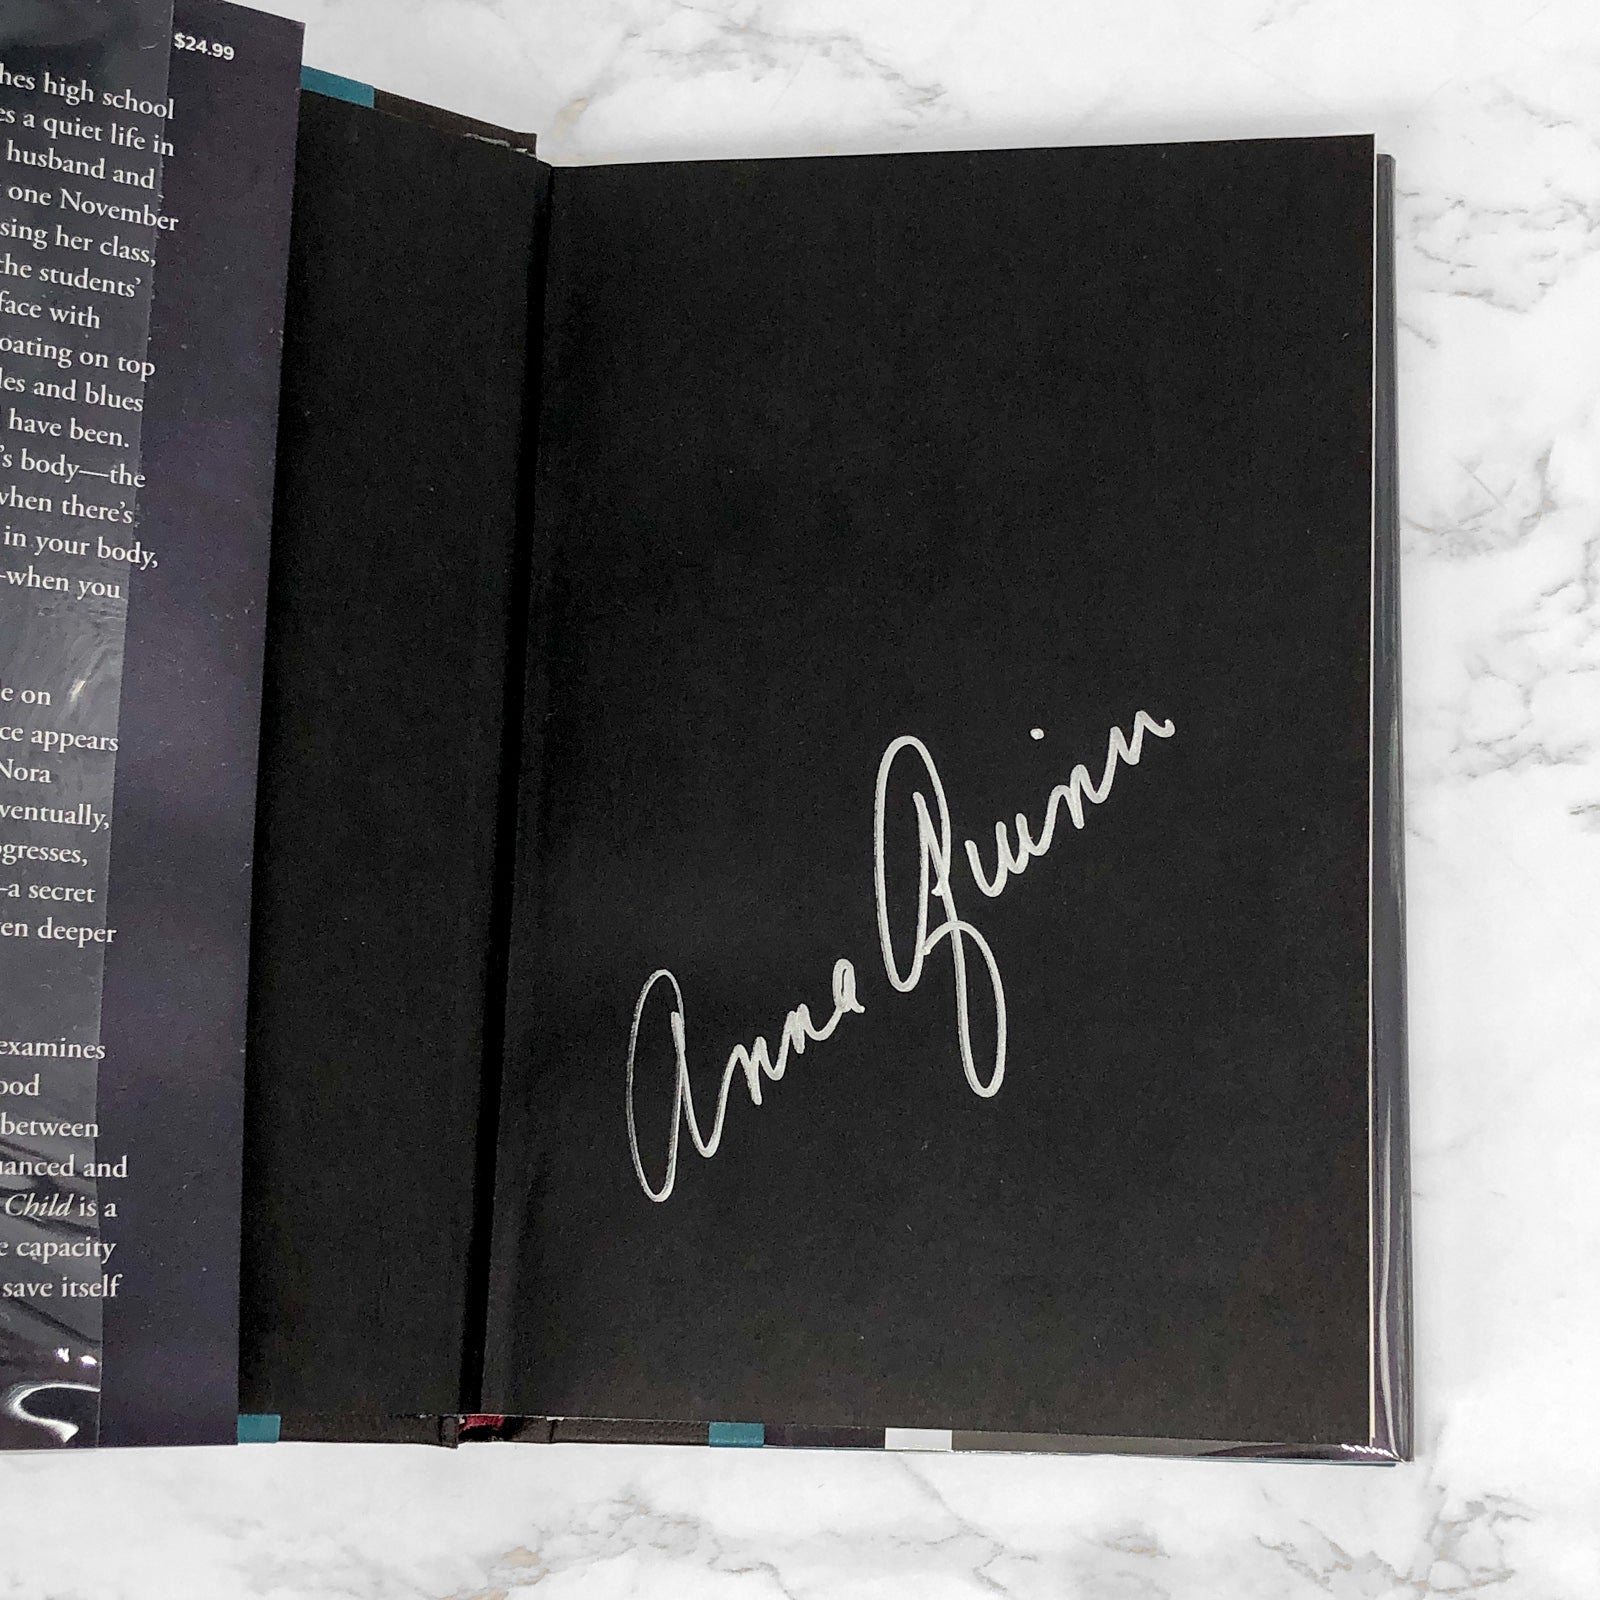 $24.99
high school
a quiet life in
husband and
one November
her class,
the students'
face with
on top
and blues
have been.
's body—the
when there's
in your body,
—when you
on
appears
Nora
eventually,
—a secret
deeper
examines
between
and
Child is a
capacity
save itself
Anna Quinn